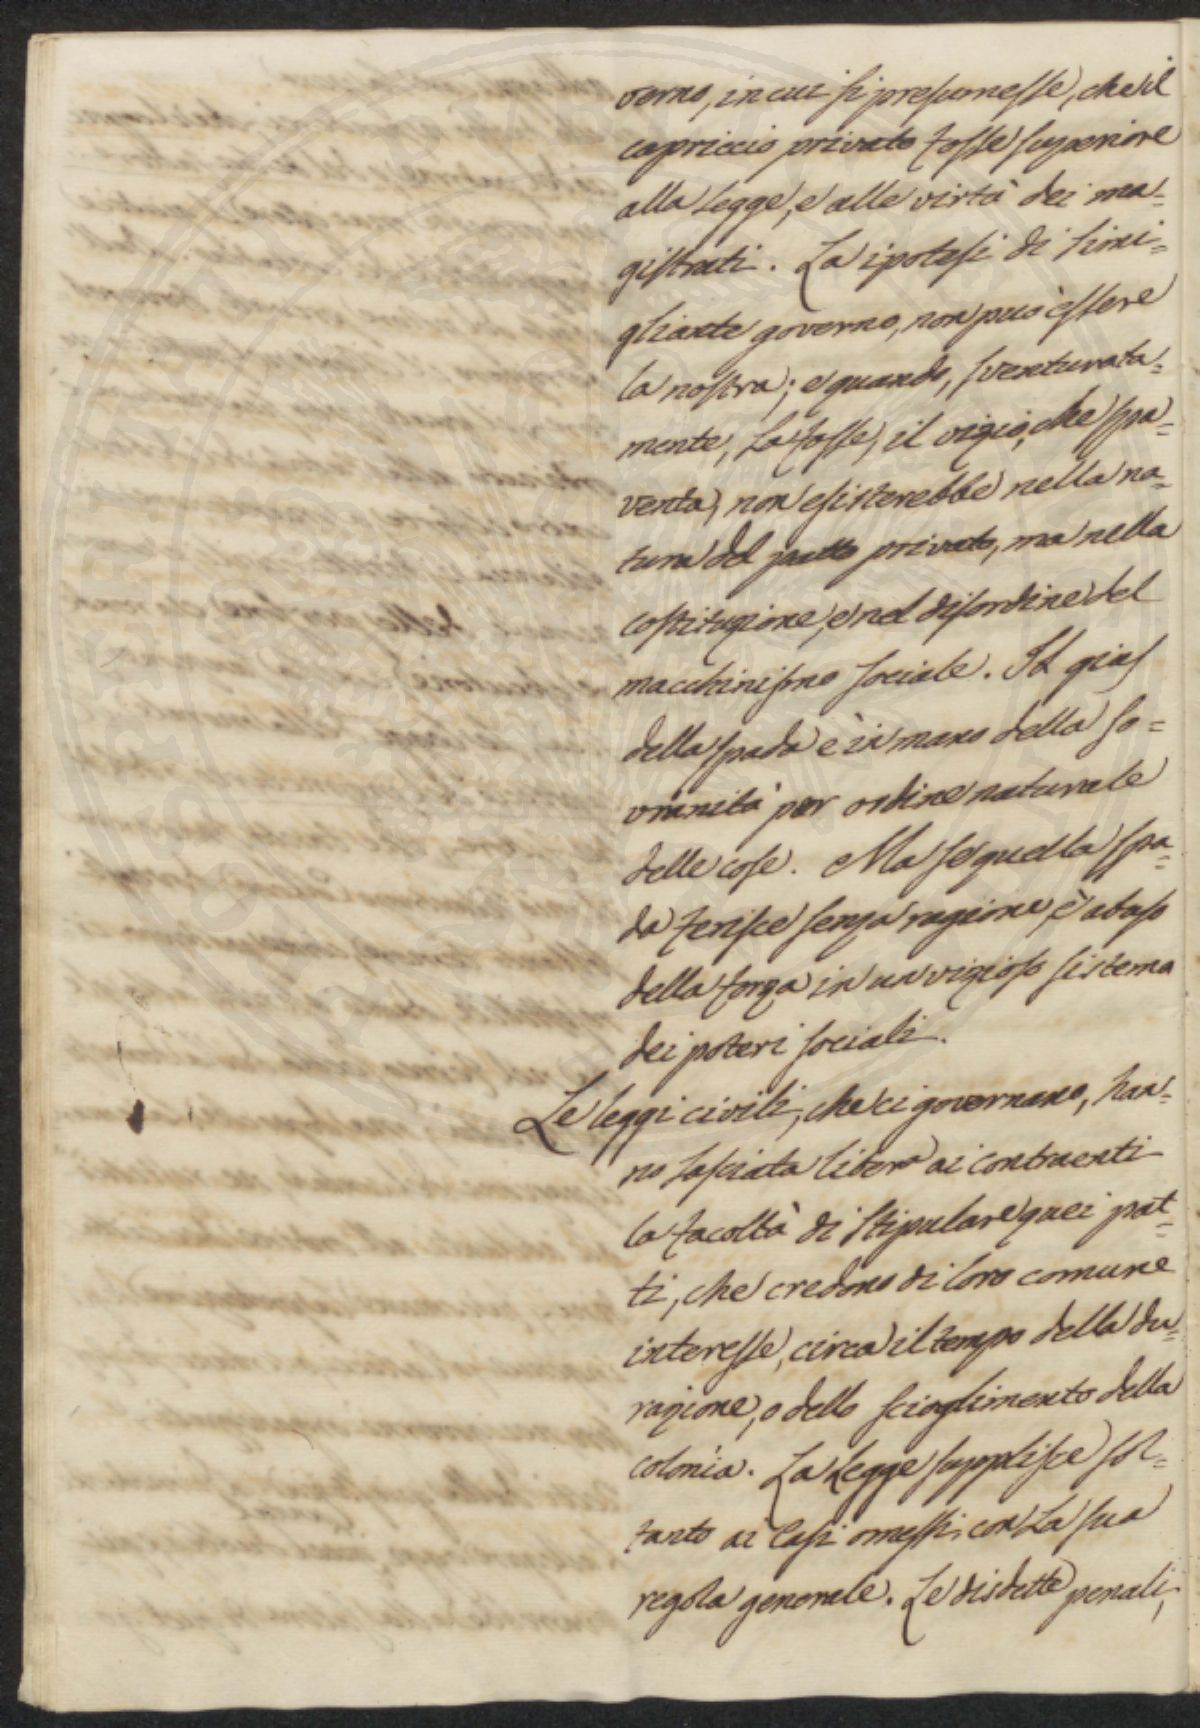 verno, in cui si presumesse, che il
capriccio privato fosse superiore
alla Legge, e alle virtù dei ma=
gistrati. La ipotesi di simi=
gliante governo, non può essere
la nostra; e quando, sventurata=
mente, La fosse, il vizio, che spa=
venta, non esisterebbe nella na=
tura del patto privato, ma nella
costituzione, e nel disordine del
macchinismo sociale. Il gius
della spada è in mano della so=
vranità per ordine naturale
delle cose. Ma se quella spa=
da ferisce senza ragione, è abuso
della forza in un vizioso sistema
dei poteri sociali.
Le leggi civili, che ci governano, han=
no lasciata libera ai contraenti
la facoltà di stipulare quei pat=
ti, che credono di loro comune
interesse, circa il tempo della du=
razione, o dello scioglimento della
colonìa. La Legge supplisce sol=
tanto ai Casi omessi, con La sua
regola generale. Le disdette penali,